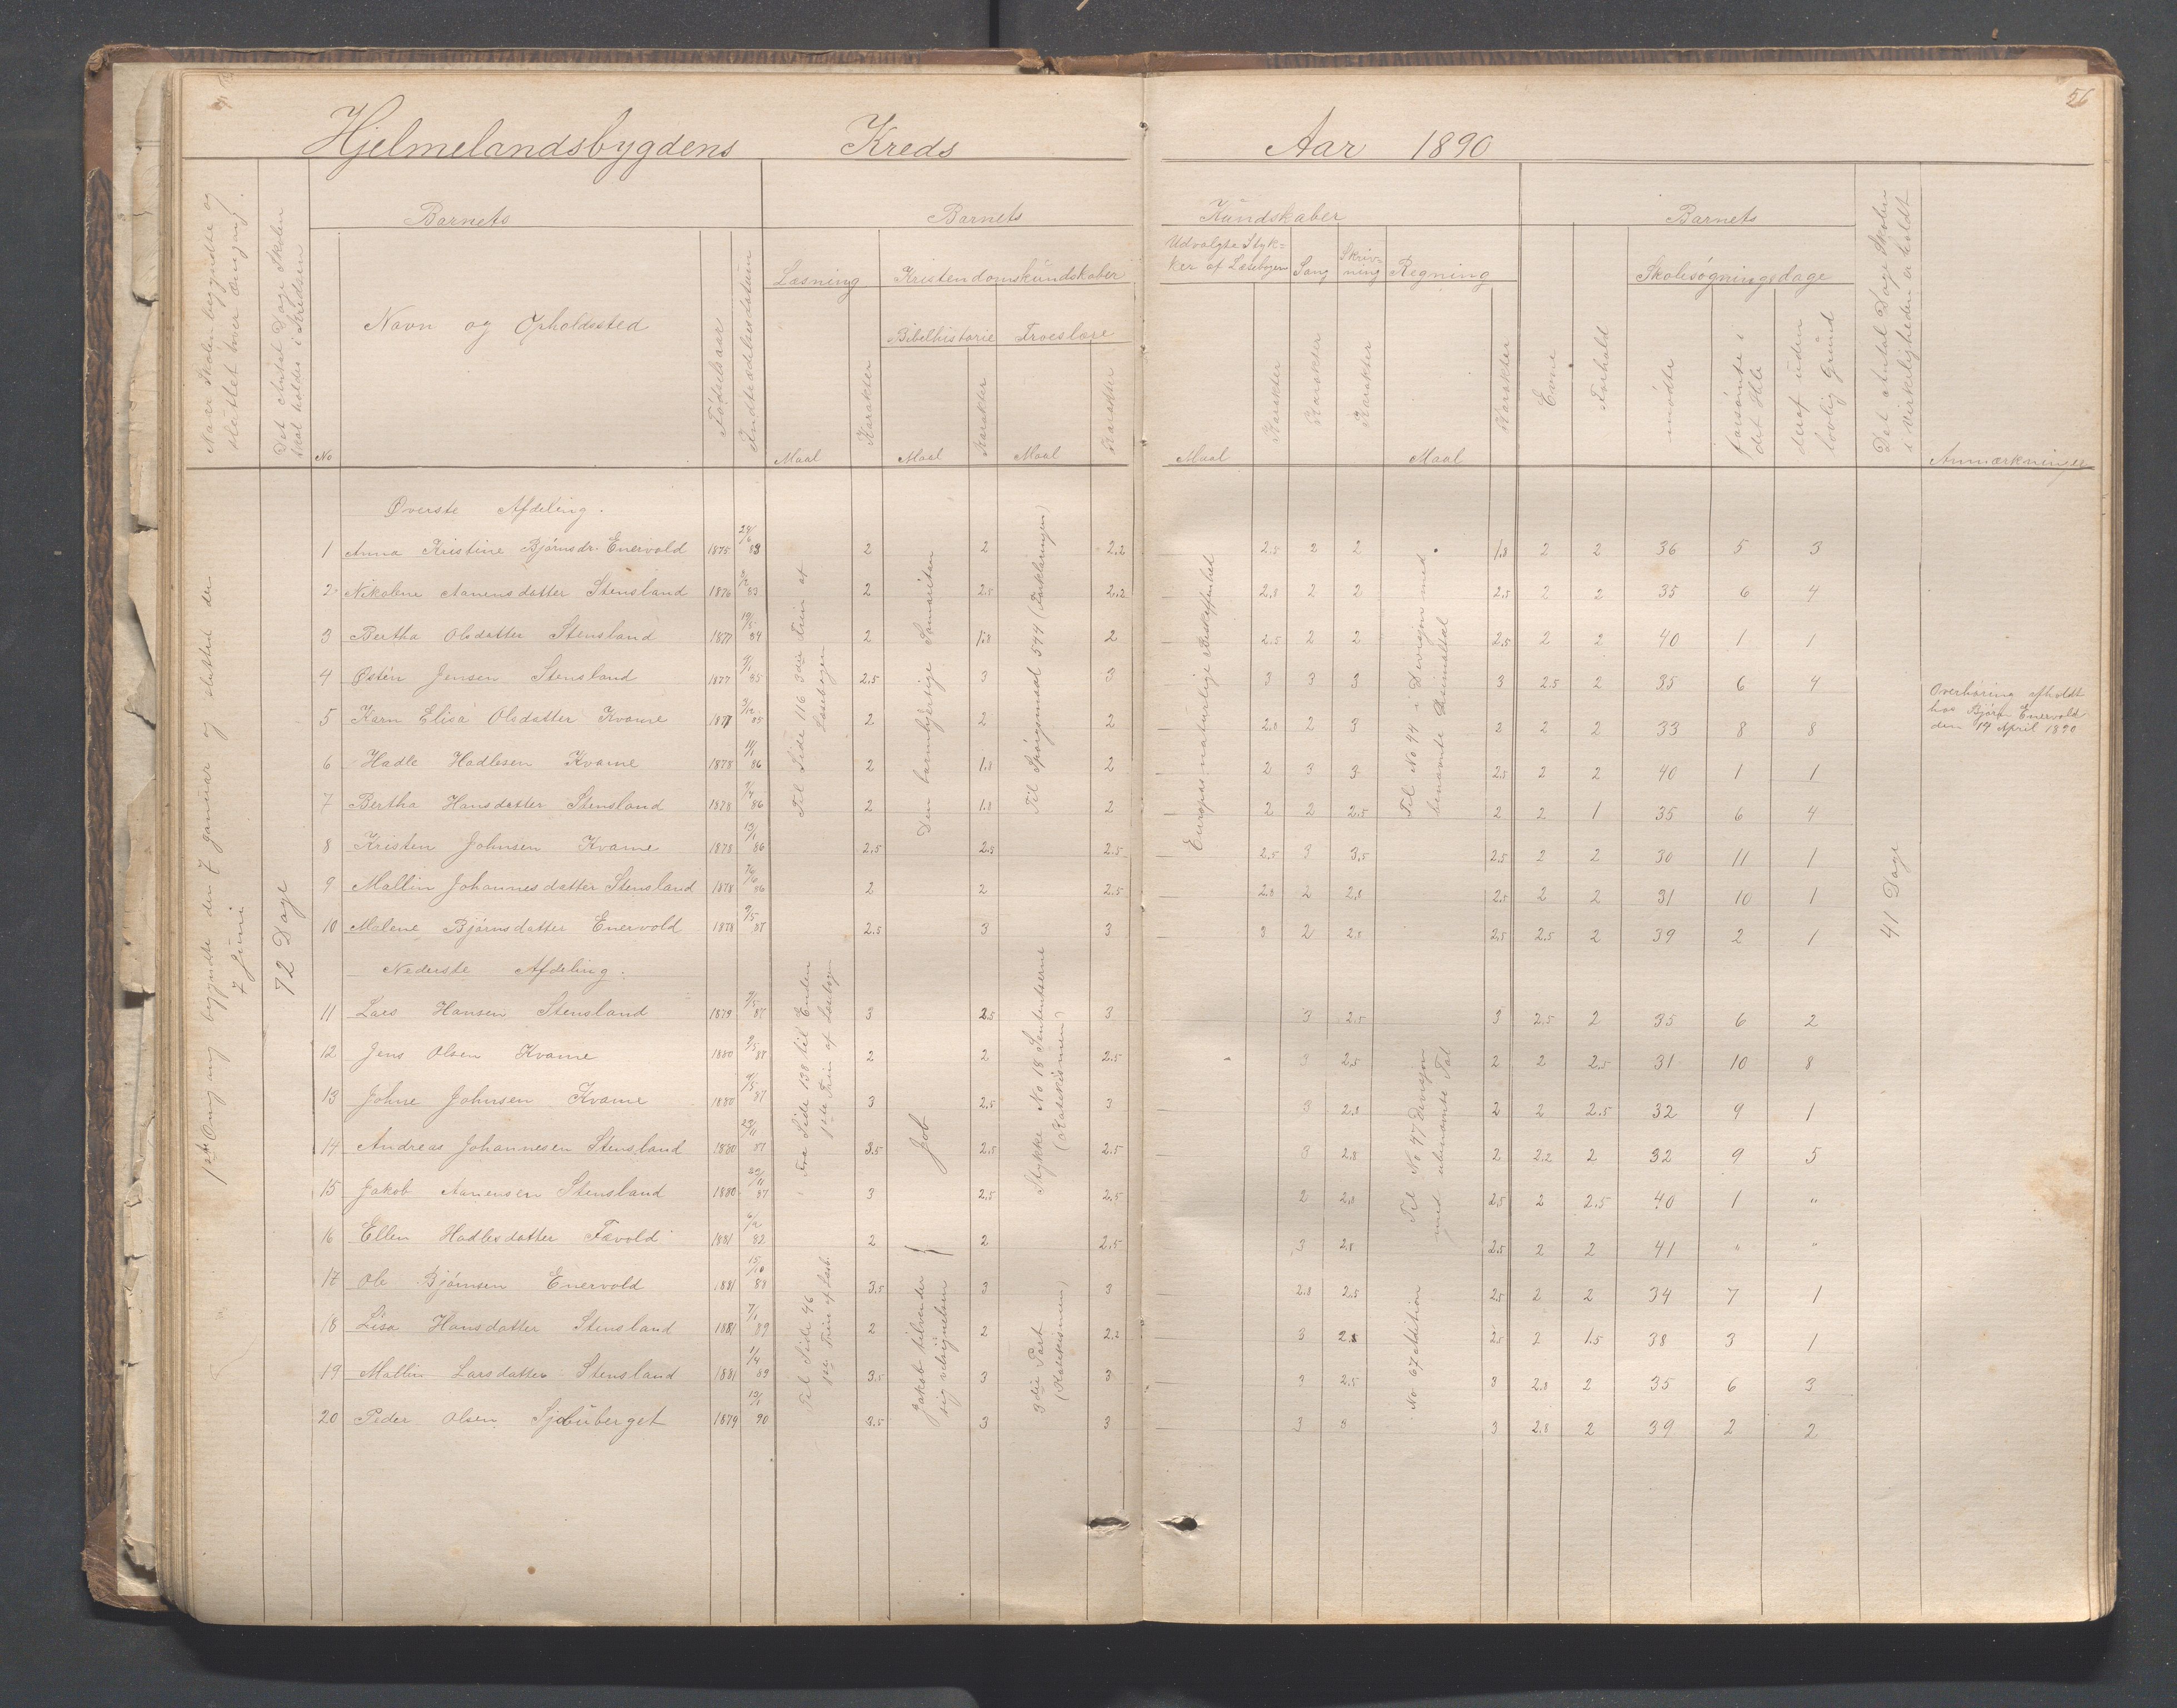 56
Hjelmelandsbygdens Kreds Aar 1890
Naar Skolen begyndte og
sluttet hver Omgang.
Det Antal Dage Skolen
skal holdes i Kredsen
Barnets
No
Navn og Opholdssted
Fødselsaar
Indtrædelsesdatum
Barnets Kundskaber
Læsning
Maal
Karakter
Kristendomskundskaber
Bibelhistorie
Maal
Karakter
Troeslære
Maal
Karakter
Udvalgte Styk=
ker af Læsebogen
Maal
Karakter
Sang
Karakter
Skriv=
ning
Karakter
Regning
Maal
Karakter
Barnets
Evne
Forhold
Skolesøgningsdage
mødte
forsømte i
det Hele
deraf uden
lovlig Grund
Det Antal Dage Skolen
i Virkeligheden er holdt
Anmærkninger
1ste Omgang begyndte den 7 Januar og sluttet den
7 Juni
72 Dage
Øverste Afdeling.
1 Anna Kristine Bjørnsdr. Enervold 1875 24/6 83 2 2 2.2 2.8 2 2 1.8 2 2 36 5 3
2 Nikoline Aanensdatter Stensland 1876 83 2 2.5 2.2 2.8 2 2 2.5 2 2 35 6 4
3 Bertha Olsdatter Stensland 1877 19/5 84 2 1.8 2 2.5 2 2 2.5 2 2 40 1 1
4 Østen Jensen Stensland 1877 9/1 85 2.5 3 3 3 3 3 3 2.5 2 35 6 4
5 Karn Elisa Olsdatter Kvame 1877 3/12 85 2 2 2 2.8 2 3 2 2 2 33 8 8
6 Hadle Hadlesen Kvame 1878 11/1 86 2 1.8 2 2 3 3 2.5 2 2 40 1 1
7 Bertha Hansdatter Stensland 1878 7/4 86 2 1.8 2 2 2 2.5 2 2 1 35 6 4
8 Kristen Johnsen Kvame 1878 13/1 86 2.5 2.5 2.5 2.5 3 3.5 2.5 2 2 30 11 1
9 Mallin Johannesdatter Stensland 1878 86 2 2 2.5 2.8 2 2.8 2.5 2 2 31 10 1
10 Malene Bjørnsdatter Enervold 1878 9/5 87 2.5 3 3 3 2 2.8 2.5 2.5 2 39 2 1
Til Side 116 3die Trin af
Læsebogen
Den barmhjertige Samaritan
Til Spørgsmaal 544 (Forklaringen)
Europas naturlige Beskaffenhed
Til No 44 i Devisjon med
benævnte Desimaltal
41 Dage
Overhøring afholdt
hos Bjørn Enervold
den 14 April 1890
Nederste Afdeling.
11 Lars Hansen Stensland 1879 9/5 87 3 2.5 3 3 2.5 3 2.5 2 35 6 2
12 Jens Olsen Kvame 1880 9/5 88 2 2 2.5 3 2.5 2 2 2.5 31 10 8
13 Johne Johnsen Kvame 1880 9/5 87 3 2.5 3 3 2.8 2 2 2.5 32 9 1
14 Andreas Johannesen Stensland 1880 23/11 87 3.5 2.5 2.5 3 2.8 2 2.2 2 32 9 5
15 Jakob Aanensen Stensland 1880 87 3 2.5 2.5 2 2.8 2.5 2 2.5 40 1 "
16 Ellen Hadlesdatter Tævold 1881 6/2 82 2 2 2.5 3 2.8 2.5 2 2 41 " "
17 Ole Bjørnsen Enervold 1881 15/10 88 3.5 3 3 2.8 2.5 2.5 2 2 34 7 1
18 Lisa Hansdatter Stensland 1881 7/1 89 2 2 2.2 3 2.8 2.5 2 1.5 38 3 1
19 Mallin Larsdatter Stensland 1881 1/4 89 3.5 3 3 3 2.5 3 2.8 2 35 6 3
20 Peder Olsen 1879 90 3.5 3 3 3 3 3 2.8 2 39 2 2
Fra Side 138 til Enden
1ste Trin af Læsebogen
Job
Stykke No 18 Sententserne
(Katekismen)
Til No 47 Devisjon
med ubenævnte Tal
Til Side 46
1ste Trin af Læseb.
Jakob tilvender
sig velsignelsen
3die Part
(Katekismen)
No 67 Adition